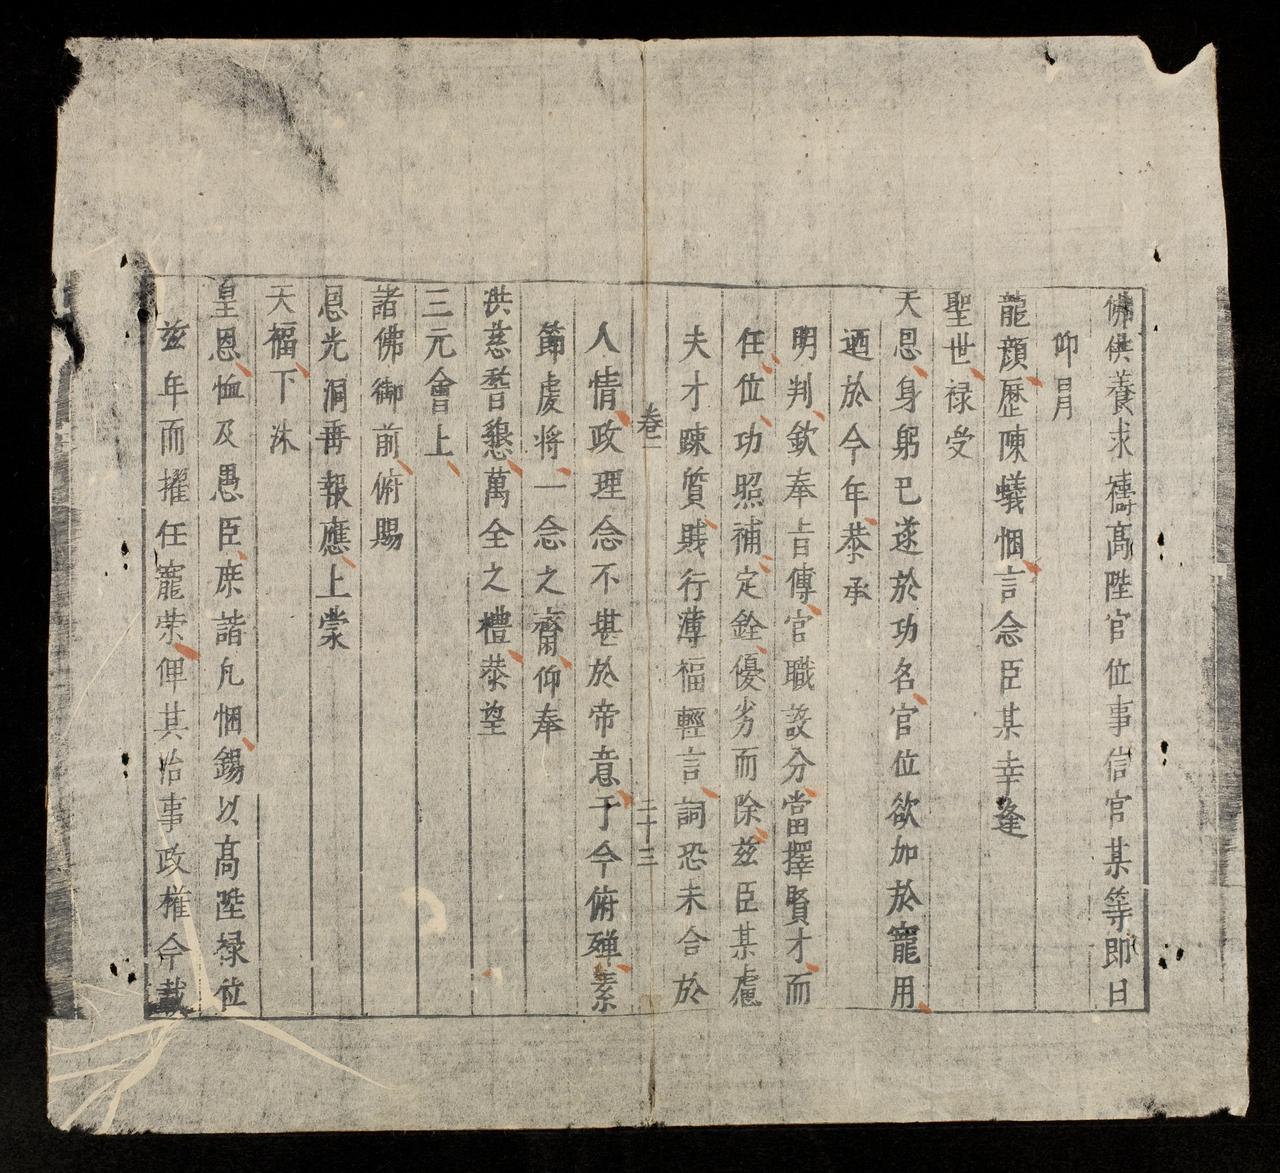 佛供養求禱高陞官位事信官某等即日
仰𣆶
龍顏歷陳蟻悃言念臣某幸逢
聖世禄受
天恩身躬已遂於功名官位欲加於寵用
迺於今年恭承
明判欽奉旨傳官職設分當擇賢才而
任位功照補定銓優劣而除兹臣某慮
夫才踈質賤行薄福輕言詞恐未合於
卷一
二十三
人情政理念不堪於帝意于今俯殫素
節虔将一念之齋仰奉
洪慈誓懇萬全之禮恭望
三元會上
諸佛御前俯賜
恩光洞垂報應上蒙
天福下沐
皇恩恤及愚臣庶諧凡悃錫以高陞禄位
兹年而擢任寵荣俾其治事政權今載